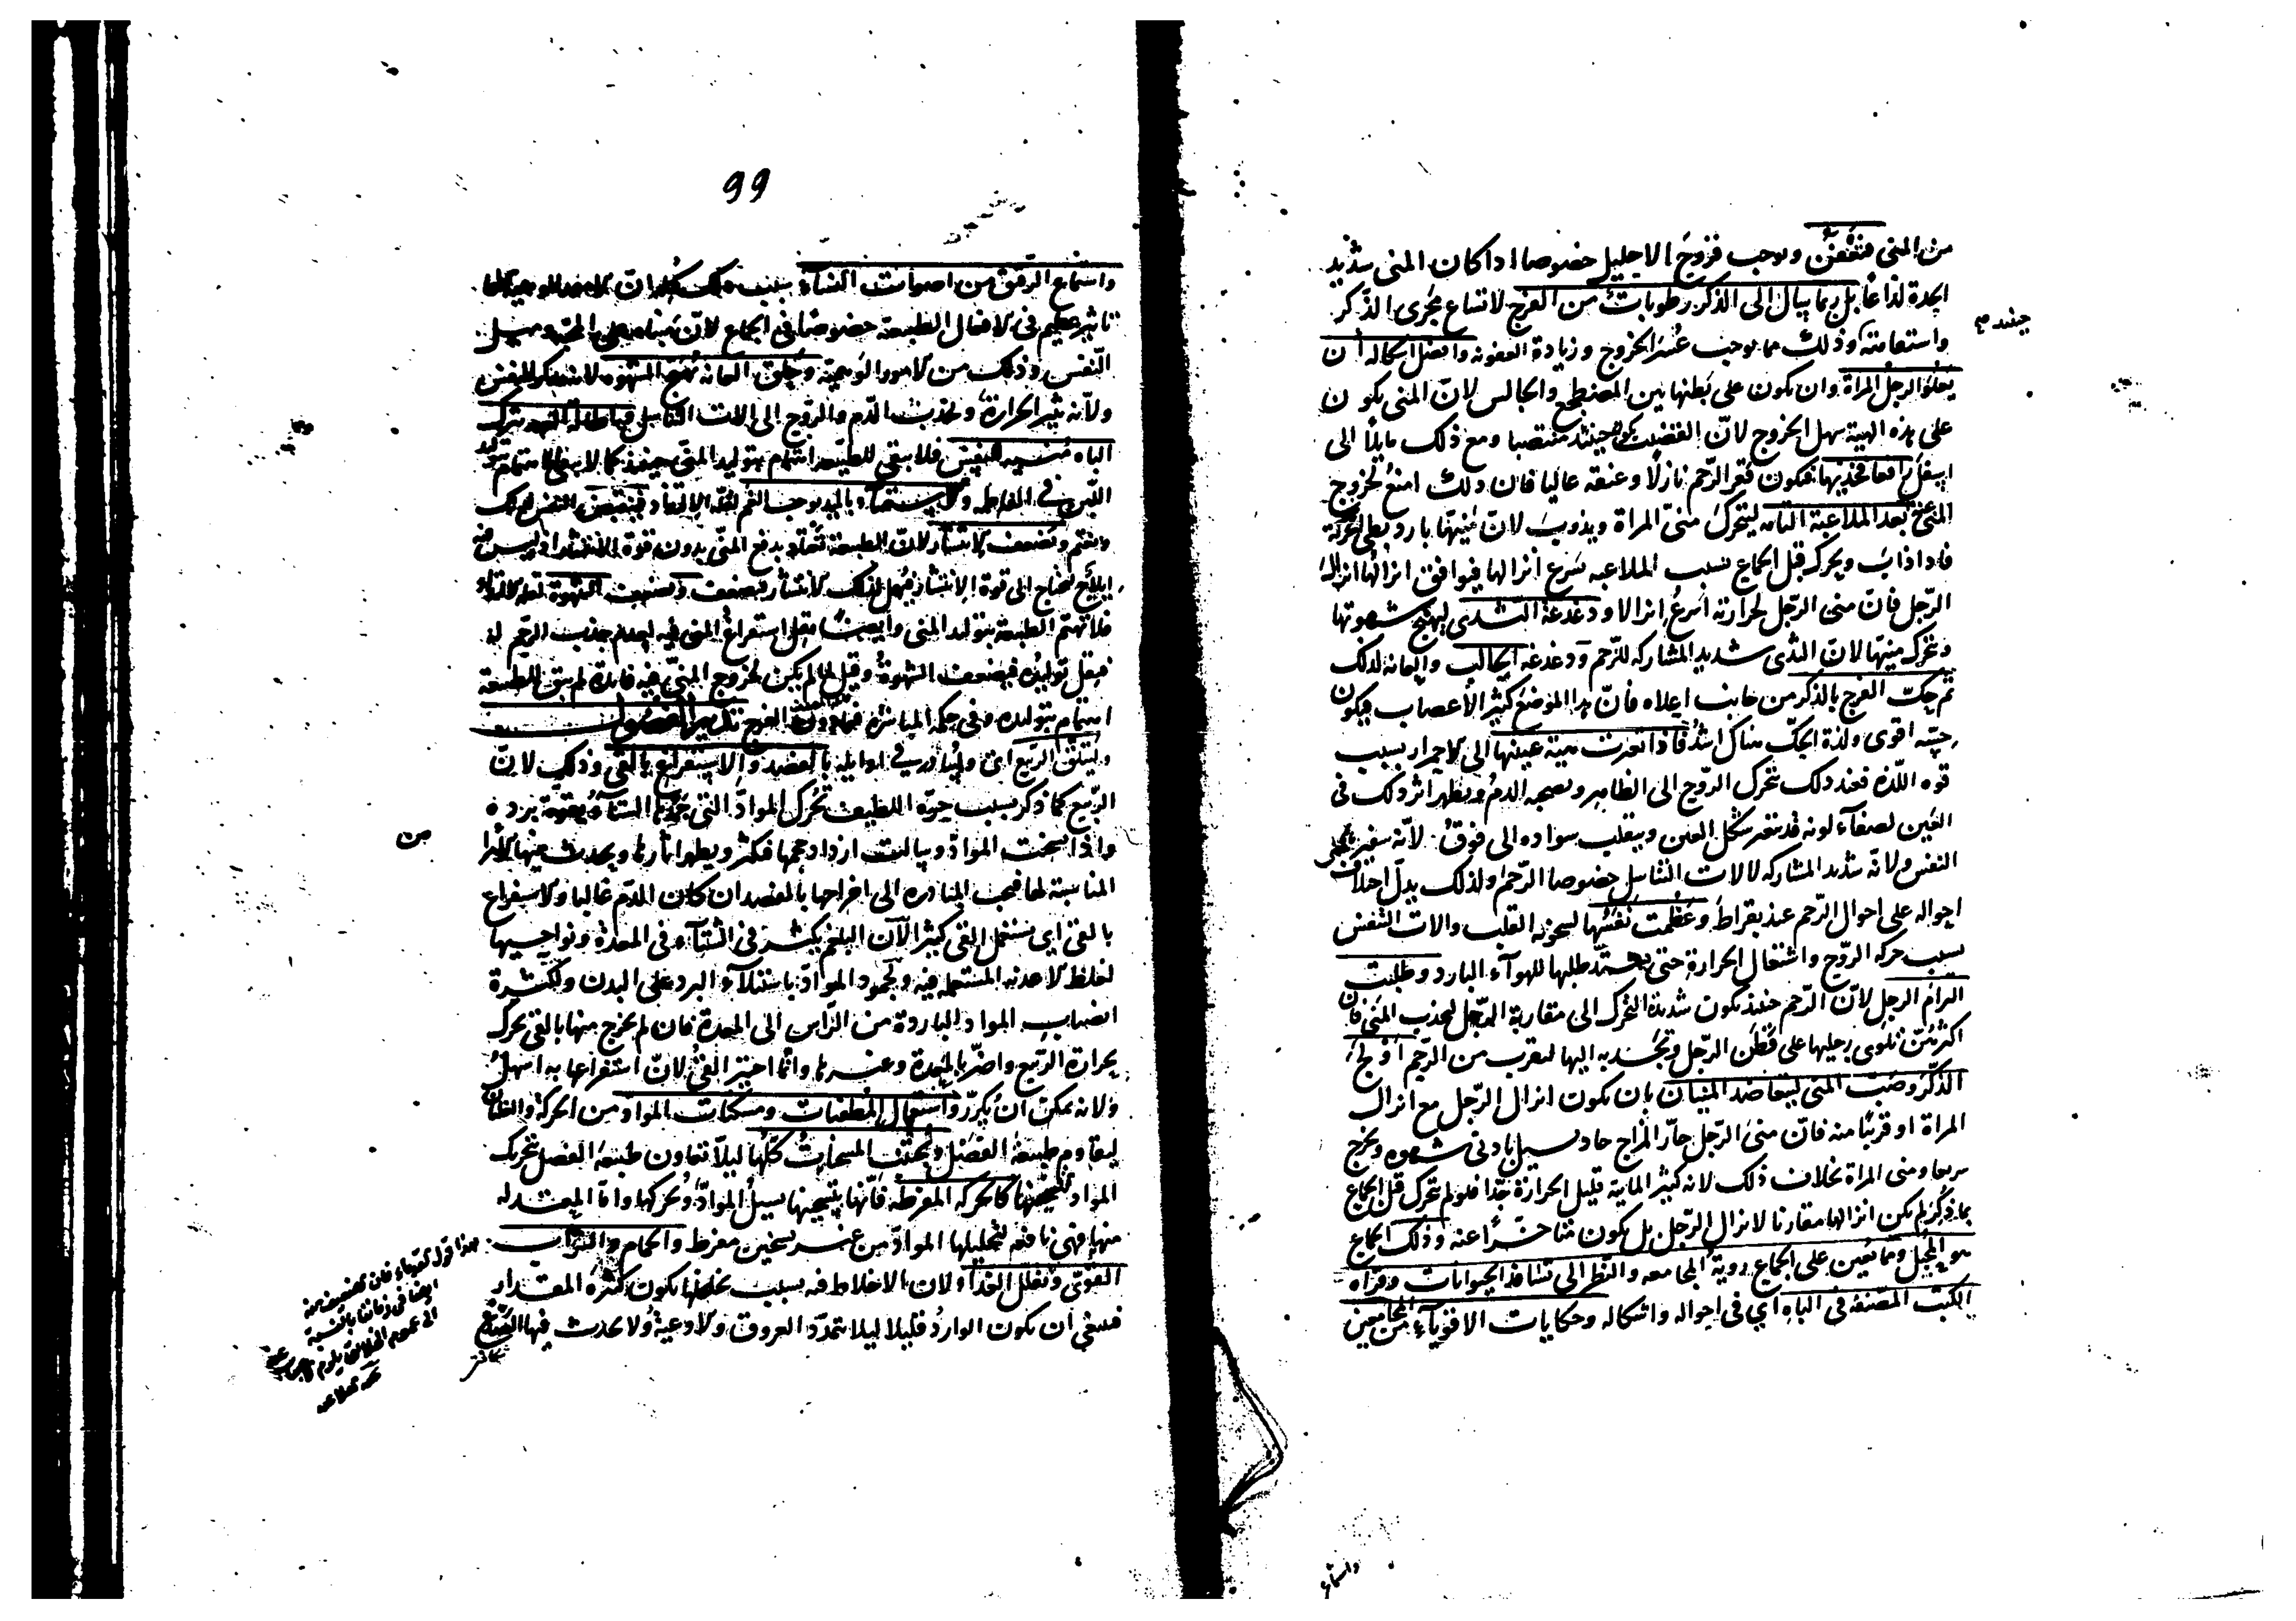 من المنى فتعفن ويوجب قروح الاحليل خصوصا اذا كان المنى شديد
الحدة لذاعا بل ربما يسال الى الذكر رطوبات من الفرج لاتساع مجرى الذكر
واستقامته وذلك مما يوجب عسر الخروج وزيادة العفونه وافضل اشكاله أن
يعلو الرجل المراة وان يكون على بطنها بين المضطجع والجالس لان المنى يكون
على هذه الهيئة سهل الخروج لان القضيب يكون حينئذ منتصبا ومع ذلك مايلا الى
اسفل رافعا فخذيها فيكون قعر الرحم نازلا وعنقه عاليا فان ذلك امنع لخروج
المنى عنه بعد الملاعبة التامه ليتحرك منى المراة ويذوب لان منيها بارد بطى الحركة
فاذا ذاب وتحرك قبل الجماع بسبب الملاعبه سرع انزالها فيوافق انزالها انزال
الرجل فان منى الرجل لحرارته اسرع انزالا ودغدغة الثدى ليهيج شهوتها
وتحرك منيها لان الثدى شديد المشاركه للرحم ودغدغه الحالب والعانه لذلك
ثم حك الفرج بالذكر من جانب اعلاه فان هذا الموضع كثير الأعصاب فيكون
حسه اقوى ولذة الحك هناك اشد فاذا تغيرت هيئة عينها الى الاحمرار بسبب
قوه اللذه فعند ذلك تتحرك الروح الى الظاهر وتصحبه الدم ويظهر اثر ذلك فى
العين لصفآء لونه قد يتغير شكل العين وينقلب سواده الى فوق لانه
النفس ولانه شديد المشاركه لالات التناسل خصوصا الرحم ولذلك يدل اختلاف
احواله على احوال الرحم عند بقراط وعظمت نفسها لسخونه القلب والات التنفس
بسبب حركه الروح واشتعال الحرارة حتى يشتد طلبها للهوآء البارد وطلبت
التزام الرجل لان الرحم حينئذ يكون شديدة التحرك الى مقاربة الرجل ليجذب المنى فان
اكثرهن تلوى رجليها على قطن الرجل وتجذبه اليها ليقرب من الرحم اولج
الذكر وصب المنى ليتعاضد المنيان بان يكون انزال الرجل مع انزال
المراة او قريبا منه فان منى الرجل حار المزاج حاد يسيل بادنى شهوه ويخرج
سريعا ومنى المراة بخلاف ذلك لانه كثير المايية قليل الحرارة جدا فلو لم تتحرك قبل الجماع
بما ذكر لم يكن انزالها مقارنا لانزال الرجل بل يكون متاخرا عنه وذلك الجماع
هو المحبل ومما يعين على الجماع روية المجامعه والنظر الى تسافد الحيوانات وقراة
الكتب المصنفه فى الباه اي فى احواله واشكاله وحكايات الاقوياء من المجامعين
واستماع
99
واستماع الرقيق من اصوات النساء بسبب ذلك كله ان الامور الوهمية لها
تاثير عظيم فى الافعال الطبيعة خصوصا فى الجماع لان مبناه على المحبة وميل
النفس وذلك من الامور الوهمية وحلق العانه يهيج الشهوه لانه يذكر النفس
ولانه يثير الحرارة ويجذب الدم والروح الى الات التناسل واطالة العهد بترك
الباه ينسيه النفس فلا يبقى للطبيعه اهتمام بتوليد المنى حينئذ كما لا يبقى اهتمام بتوليد
اللبن فى الفاطمه والاستمناء باليد يوجب الغم لقلة الالتذاذ فتنقبض النفس لذلك
ويغتم ويضعف الانتشار لان الطبيعة تعتاد بدفع المنى بدون قوة الانتشار اذ ليس فيه
ايلاج يحتاج الى قوة الانتشار فيهمل لذلك الانتشار فيضعف ويضعف الشهوة لقلة الالتذاذ
فلا تهتم الطبيعة بتوليد المنى وايضا يقل استفراغ المنى فيه لعدم جذب الرحم له
فيقل توليده فيضعف الشهوة وقيل لما لم يكن لخروج المنى فيه فايدة لم يبق للطبيعة
اهتمام بتوليده وفى حكمه المباشره فيما دون الفرج تدبير الفصول
وليتلق الربيع اى وليبادر فى اوايله بالفصد والاستفراغ بالقى وذلك لان
الربيع كما ذكر بسبب حره اللطيف تحرك المواد التى جمدها الشتاء بقوة برده
واذا سخنت المواد وسالت ازداد حجمها فكثر ويظهر اثارها ويحدث عنها الامراض
المناسبة لها فيجب المبادره الى اخراجها بالفصد ان كان الدم غالبا والاستفراغ
بالقى اى يستعمل القى كثيرا لان البلغم يكثر فى الشتاء فى المعدة ونواحيها
لغلظ الاغذيه المستعمله فيه ولجمود المواد باستيلآء البرد على البدن ولكثرة
انصباب المواد الباردة من الراس الى المعدة فان لم يخرج منها بالقى تحرك
بحرارة الربيع واضر بالمعدة وغيرها وانما اختير القى لان استفراغها به اسهل
ولانه يمكن ان يكرر واستعمال المطفيات ومسكنات المواد من الحركة والغليان
ليقاوم طبيعة الفصل ويجتنب المسخنات كلها ليلا تعاون طبيعة الفصل تحريك
المواد بتسخينها كالحركه المفرطه فانها بتسخينها يسيل المواد وتحركها واما المعتدله
منها فهى نافعه لتحليلها المواد من غير تسخين مفرط والحمام والشراب
القوى وتقليل الغذا ولان الاخلاط فيه بسبب تخلخلها يكون كثيرة المقدار
فينبغي أن يكون الوارد قليلا ليلا يتمدد العروق والاوعية ولا يحدث فيها التصدع
من